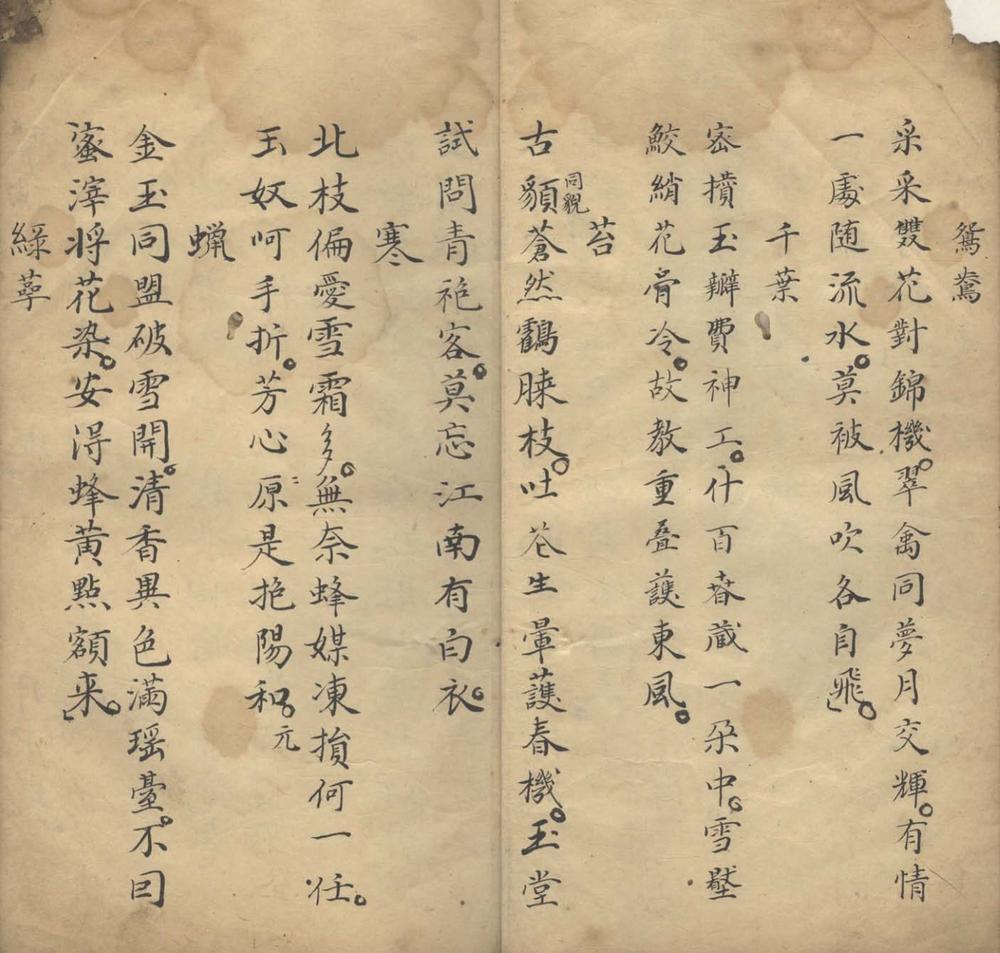 鴛鴦
采采雙花對錦機。翠禽同夢月交輝。有情
一處随流水。莫被風吹各自飛。
千葉
密攢玉瓣費神工。什百春藏一朵中。雪壓
鮫綃花骨冷。故教重叠護東風。
苔
古䫉同貌蒼然鶴膝枝。吐花生暈護春機。玉堂
試問青袍客。莫忘江南有白衣。
寒
北枝偏愛雪霜多。無奈蜂媒凍損何一任。
玉奴呵手折。芳心原是抱陽和。元
蠟
金玉同盟破雪開。清香異色滿瑶臺。不囙
蜜滓将花染。安得蜂黄點額来。
綠萼